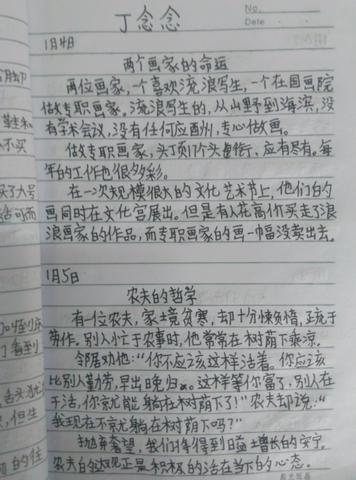 丁念念
No.
Date
1月4日
两个画家的命运
两位画家,一个喜欢流浪写生,一个在国画院
做专职画家。流浪写生的,从山野到海滨,没
有学术会议,没有任何应酬,专心做画。
做专职画家,头顶17个头衔,应有尽有。每
年的工作也很多彩。
在一次规模很大的文化艺术节上,他们的
画同时在文化宫展出。但是有人花高价买走了浪
浪画家的作品,而专职画家的画一幅没卖出去。
1月5日
农夫的哲学
有一位农夫,家境贫寒,却十分懒惰,正疏于
劳作。别人忙于农事时,他常常在树荫下乘凉。
邻居对他:“你不应该这样活着。你应该
比别人勤劳,早出晚归。这样等你富了,别人在
干活,你就能躺在树荫下了!”农夫却说:“
我现在不就躺在树荫下吗?”
抛弃奢望,我们才得到日益增长的安宁,
农夫的达观正是积极的活在当下的心态。